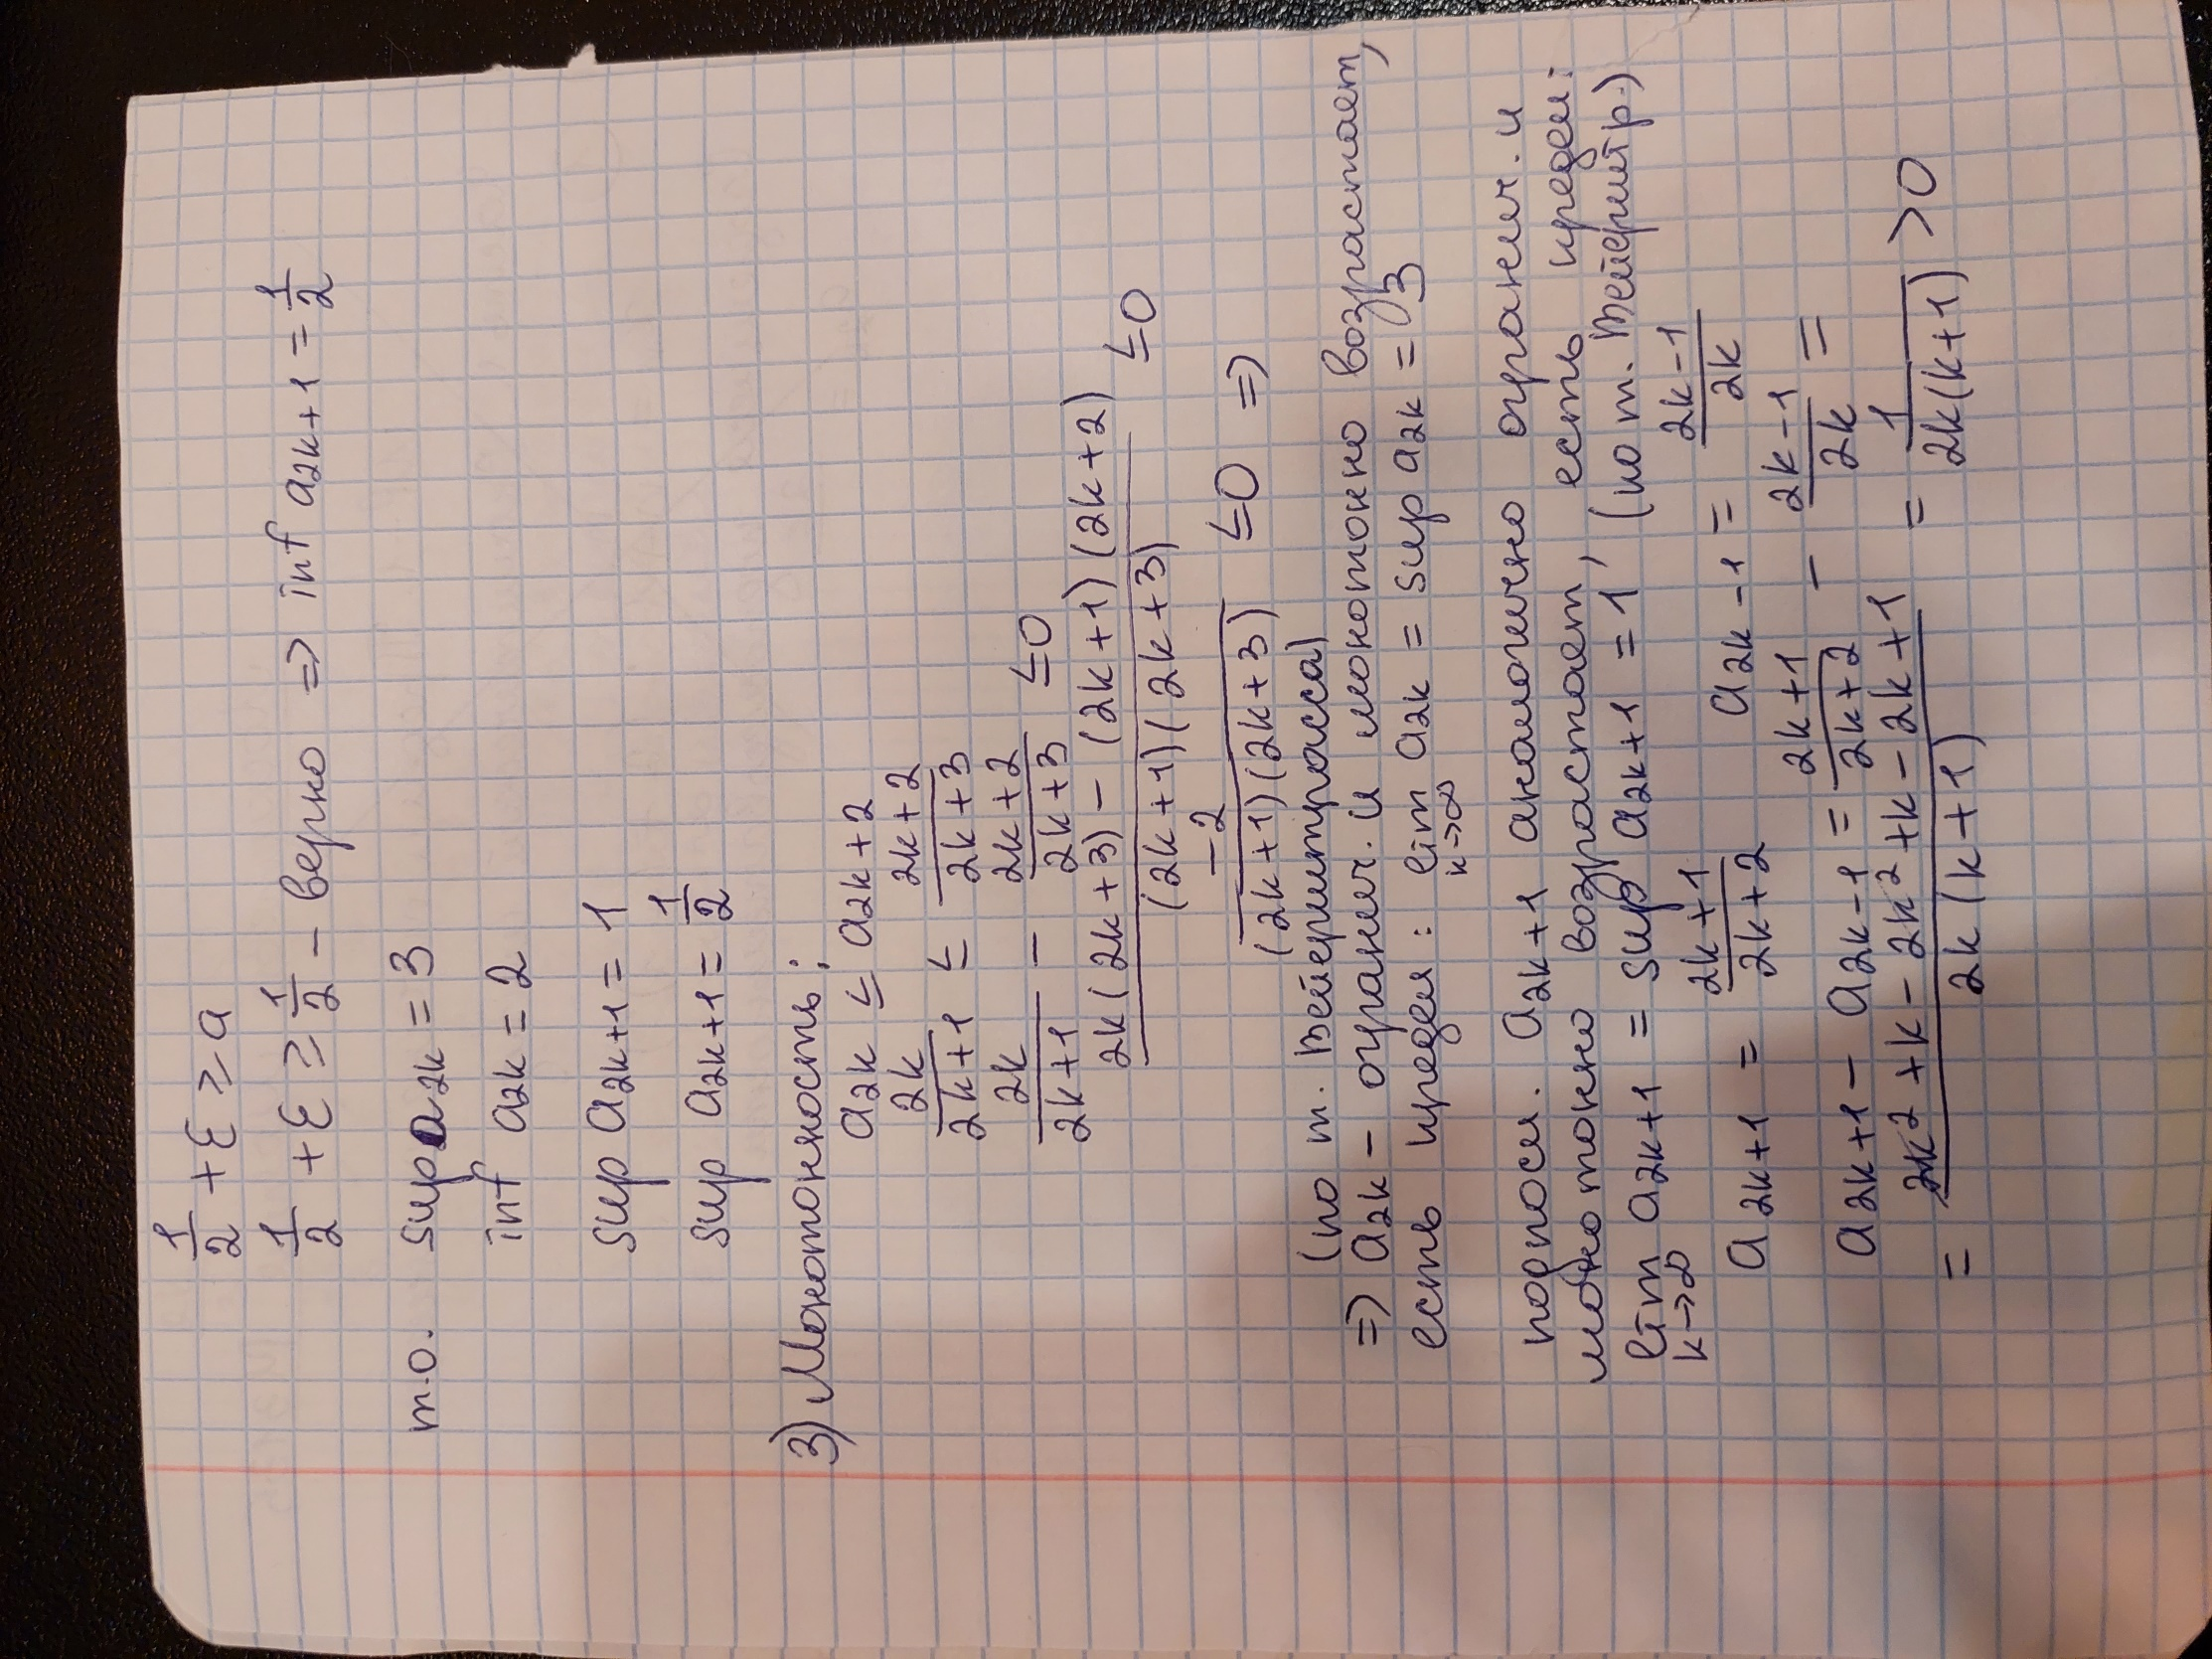 1/2 + ε ≥ a
1/2 + ε ≥ 1/2 - верно => inf a2k+1 = 1/2
т.о. sup a2k = 3
inf a2k = 2
sup a2k+1 = 1
sup a2k+1 = 1/2
3) Монотонность:
a2k ≤ a2k+2
2k/(2k+1) ≤ (2k+2)/(2k+3)
2k/(2k+1) - (2k+2)/(2k+3) ≤0
(2k(2k+3) - (2k+1)(2k+2))/((2k+1)(2k+3)) ≤0
-2/((2k+1)(2k+3)) ≤0 =>
(по т. Вейерштрасса)
=> a2k - огранич. и монотонно возрастает,
есть предел: lim k→∞ a2k = sup a2k = 3
подпосл. a2k+1 аналогично огранич. и
монотонно возрастает, есть предел:
lim k→∞ a2k+1 = sup a2k+1 = 1, (по т. Вейерштр.)
a2k+1 = (2k+1)/(2k+2) a2k-1 = (2k-1)/2k
a2k+1 - a2k-1 = (2k+1)/(2k+2) - (2k-1)/2k =
= (2k²+k-2k²+k-2k+1)/(2k(k+1)) = 1/(2k(k+1)) >0